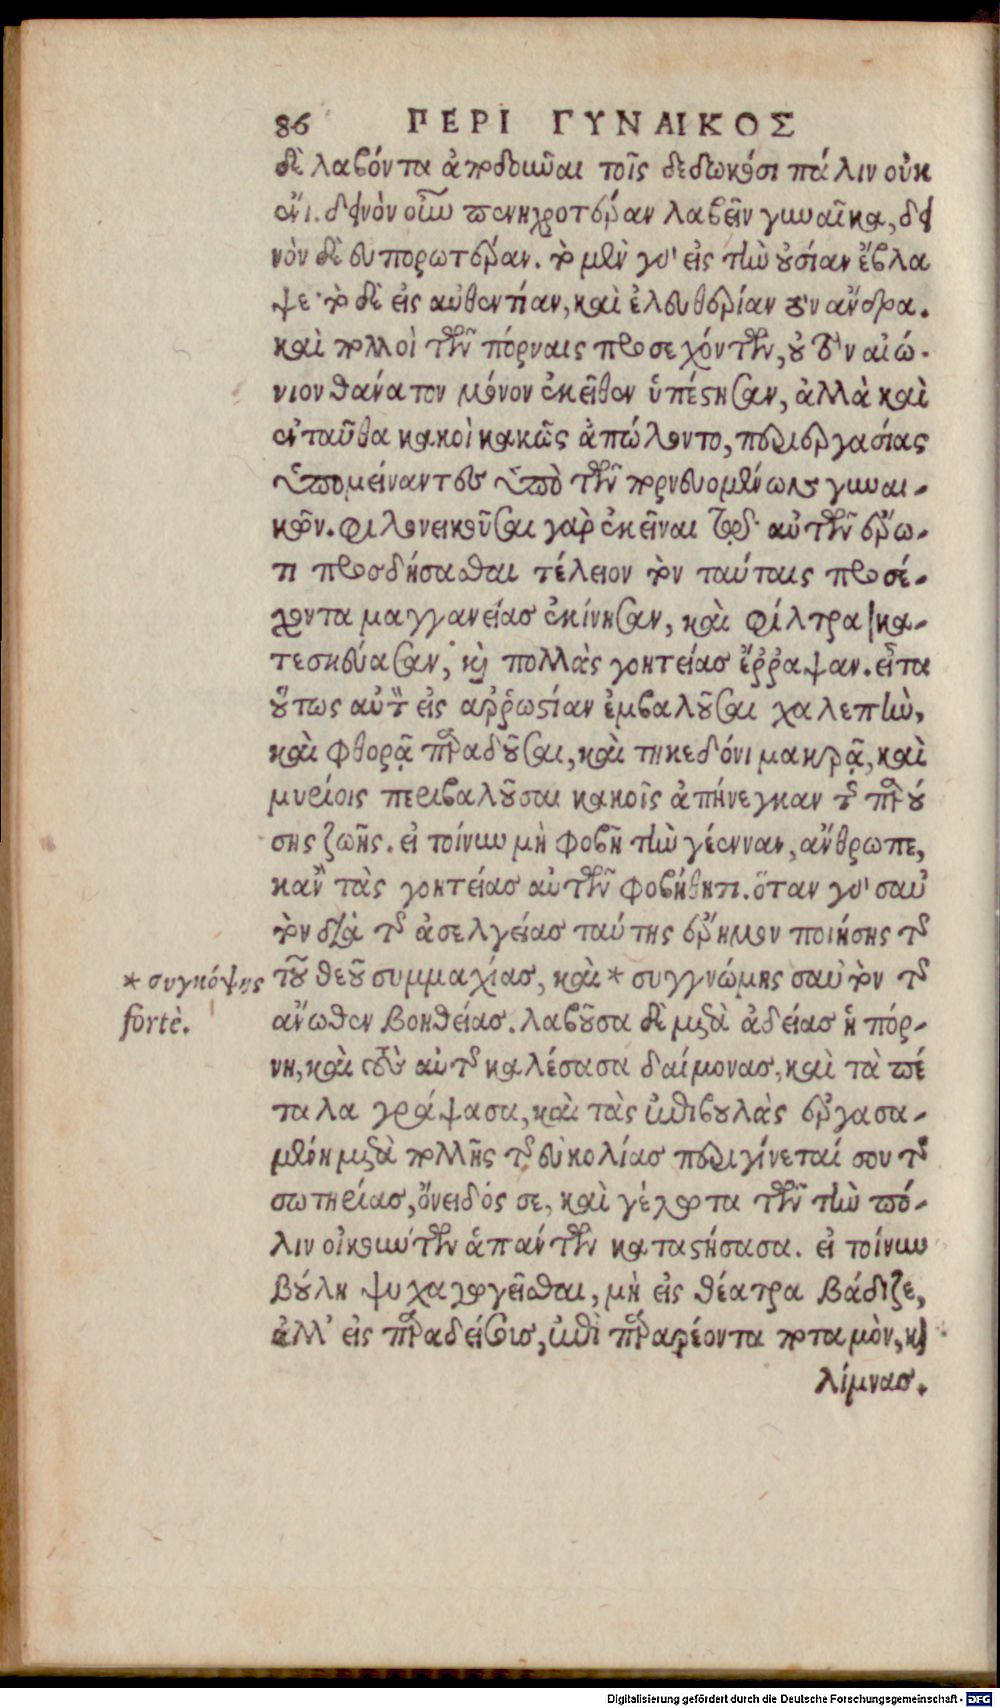 86 ΠΕΡΙ ΓΥΝΑΙΚΟΣ
δὲ λαβόντα ἀποδοῦναι τοῖς δεδωκόσι πάλιν οὐκ
ἔνι. δεινὸν οὖν πενιχροτέραν λαβεῖν γυναῖκα, δει
νὸν δὲ εὐπορωτέραν. τὸ μὲν γὸ εἰς τὴν οὐσίαν ἔβλα
ψε· τὸ δὲ εἰς αὐθεντίαν, καὶ ἐλευθερίαν τὸν ἄνδρα.
καὶ πολλοὶ τῶν πόρναις προσεχόντων, οὐ τὸν αἰώ-
νιον θάνατον μόνον ἐκεῖθεν ὑπέστησαν, ἀλλὰ καὶ
ἐνταῦθα κακοὶ κακῶς ἀπώλοντο, περιεργασίας
ὑπομείναντες ὑπὸ τῶν πορνευομένων γυναι-
κῶν. φιλονεικοῦσαι γὰρ ἐκεῖναι τῷ αὐτῶν ἔρω-
τι προσδήσασθαι τέλειον τὸν ταύταις προσέ-
χοντα μαγγανείας ἐκίνησαν, καὶ φίλτρα κα-
τεσκεύασαν, καὶ πολλὰς γοητείας ἔῤῥαψαν. εἶτα
οὕτως αὐτὸν εἰς αῤῥωστίαν ἐμβαλοῦσαι χαλεπὴν,
καὶ φθορᾷ παραδοῦσαι, καὶ τηκεδόνι μακρᾷ, καὶ
μυρίοις περιβαλοῦσαι κακοῖς ἀπήνεγκαν τῆς παρού
σης ζωῆς. εἰ τοίνυν μὴ φοβῇ τὴν γέενναν, ἄνθρωπε,
κἂν τὰς γοητείας αὐτῶν φοβήθητι. ὅταν γὸ σαυ
τὸν διὰ τῆς ἀσελγείας ταύτης ἔρημον ποιήσῃς τῆς
* συγκόψῃς τοῦ θεοῦ συμμαχίας, καὶ * συγγνώμης σαυτὸν τῆς
fortè. ἄνωθεν βοηθείας. λαβοῦσα δὲ μετὰ ἀδείας ἡ πόρ-
νη, καὶ τοὺς αὐτῆς καλέσασα δαίμονας, καὶ τὰ πέ
ταλα γράψασα, καὶ τὰς ἐπιβουλὰς ἐργασα-
μένη μετὰ πολλῆς τῆς εὐκολίας περιγίνεταί σου τῆς
σωτηρίας, ὄνειδός σε, καὶ γέλωτα τῶν τὴν πό-
λιν οἰκούντων ἁπάντων καταστήσασα. εἰ τοίνυν
βούλῃ ψυχαγωγεῖσθαι, μὴ εἰς θέατρα βάδιζε,
ἀλλ' εἰς παραδείσους, ἐπὶ παραρέοντα ποταμὸν, καὶ
λίμνας.
Digitalisierung gefördert durch die Deutsche Forschungsgemeinschaft - DFG